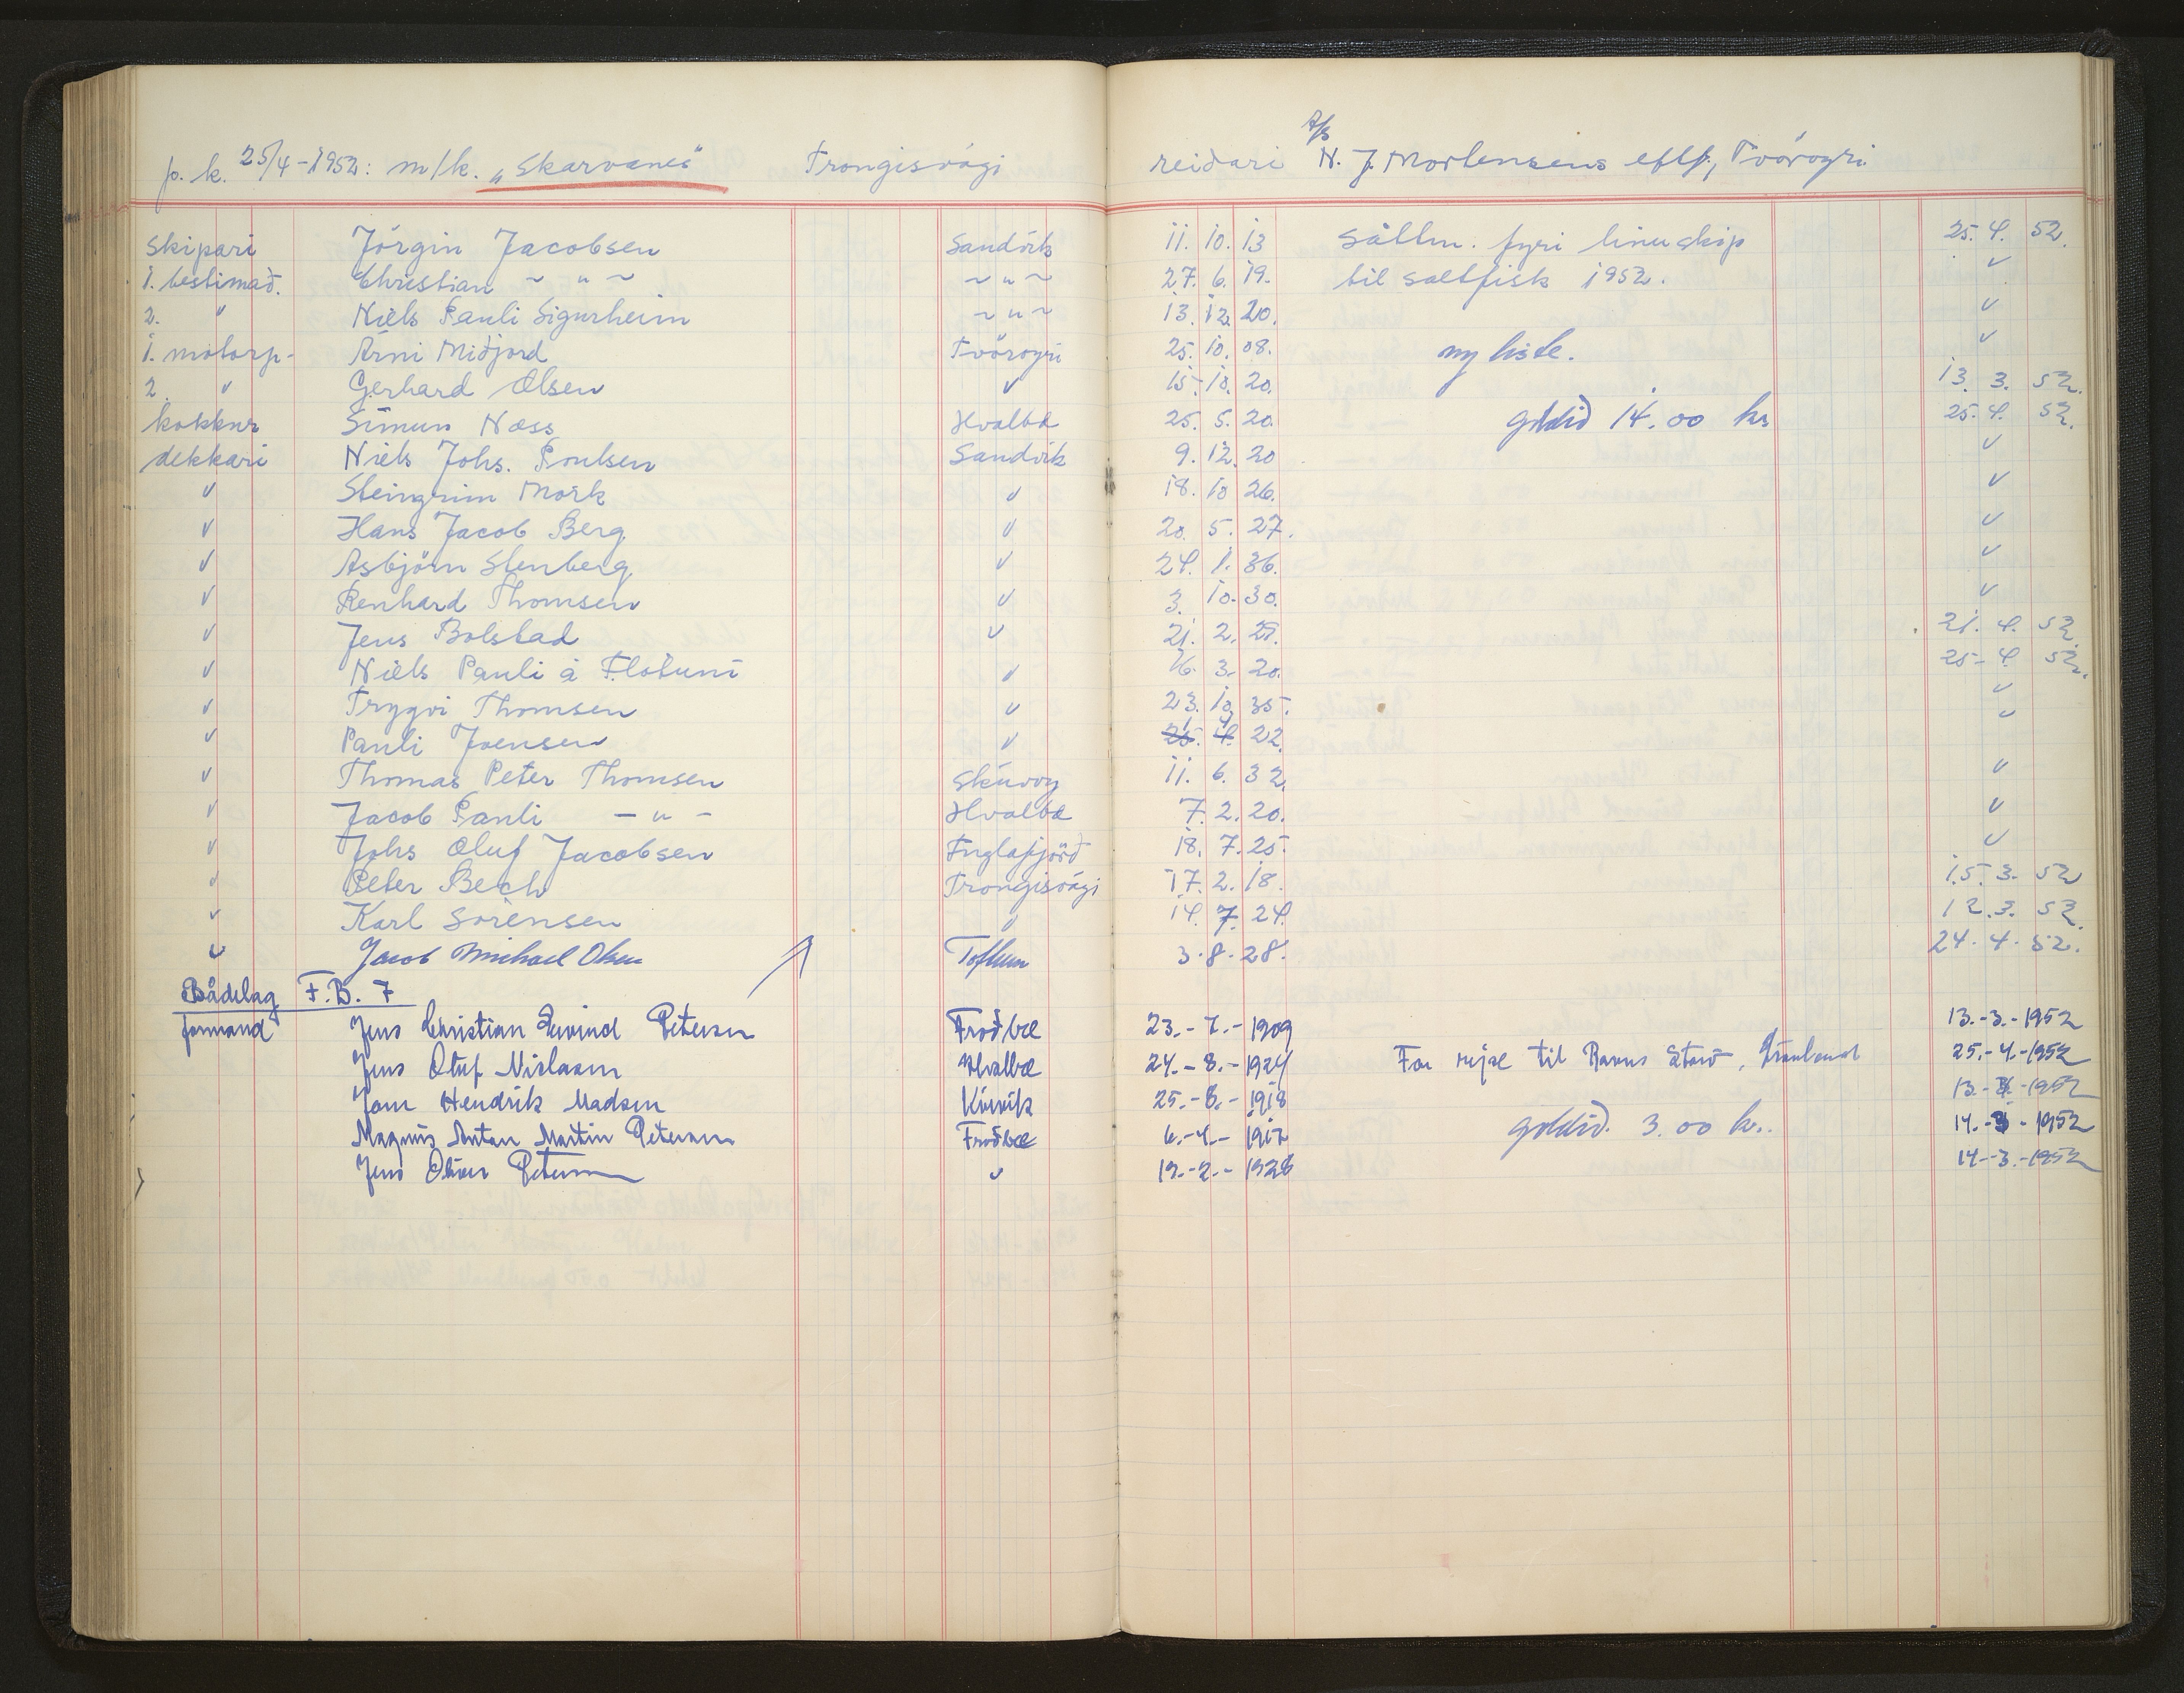 p. k. 25/4-1952: m/k. „Skarvanes" Trongisvági reidari A/S N. J. Mortensens eftf., Tvöroyri
skipari Jörgin Jacobsen Sandvík 11. 10. 13 sáttm. fyri linuskip 25. 4. 52.
1. bestimað. Christian ~ " ~ ~ " ~ 27. 6. 19. til saltfisk 1952. "
2. " Niels Pauli Sigurheim ~ " ~ 13. 12. 20. "
1. motorp- Árni Miðjord Tvöroyri 25. 10. 08. ny liste. "
2. " Gerhard Olsen " 15. 10. 20. 13. 3. 52.
kokkur Simun Næss Hvalba 25. 5. 20. goldið 14.00 kr 25. 4. 52.
dekkari Niels Johs. Poulsen Sandvik 9. 12. 20 "
" Steingrim Mörk " 18. 10 26. "
" Hans Jacob Berg " 20. 5. 27. "
" Asbjörn Stenberg " 24. 1. 36. "
" Renhard Thomsen " 3. 10. 30. "
" Jens Bolstad " 21. 2. 27. 21. 4. 52.
" Niels Pauli á Flötuni " 16. 3. 20. 25. 4. 52.
" Tryggvi Thomsen " 23. 10. 35. "
" Pauli Joensen " 22. "
" Thomas Peter Thomsen Skúvoy 11. 6. 32. "
" Jacob Pauli - " - Hvalba 7. 2. 20. "
" Johs Oluf Jacobsen Fuglafjörð 18. 7. 25. "
" Peter Bech Trongisvági 17. 2. 18. 15. 3. 52
" Karl Sörensen " 14. 7. 24. 12. 3. 52.
" Jacob Michael Olsen Toftum 3. 8. 28. 24. 4. 52.
Bådelag F.B. 7
formand Jens Christian Eivind Petersen Froðbæ 23.-7.-1909 13.-3.-1952
Jens Oluf Nielsen Hvalbæ 24.-8.-1924 For rejse til Ravns Storö, Grönland 25.-4.-1952
Hendrik Madsen Kvívík 25.-8.-1918 13.- -1952
Magnus Anton Martin Petersen Froðbæ 6.-4.-1917 goldið. 3.00 kr. 14.-3-1952
Jens Oliver Petersen " 19.-2.-1928 14.-3.-1952